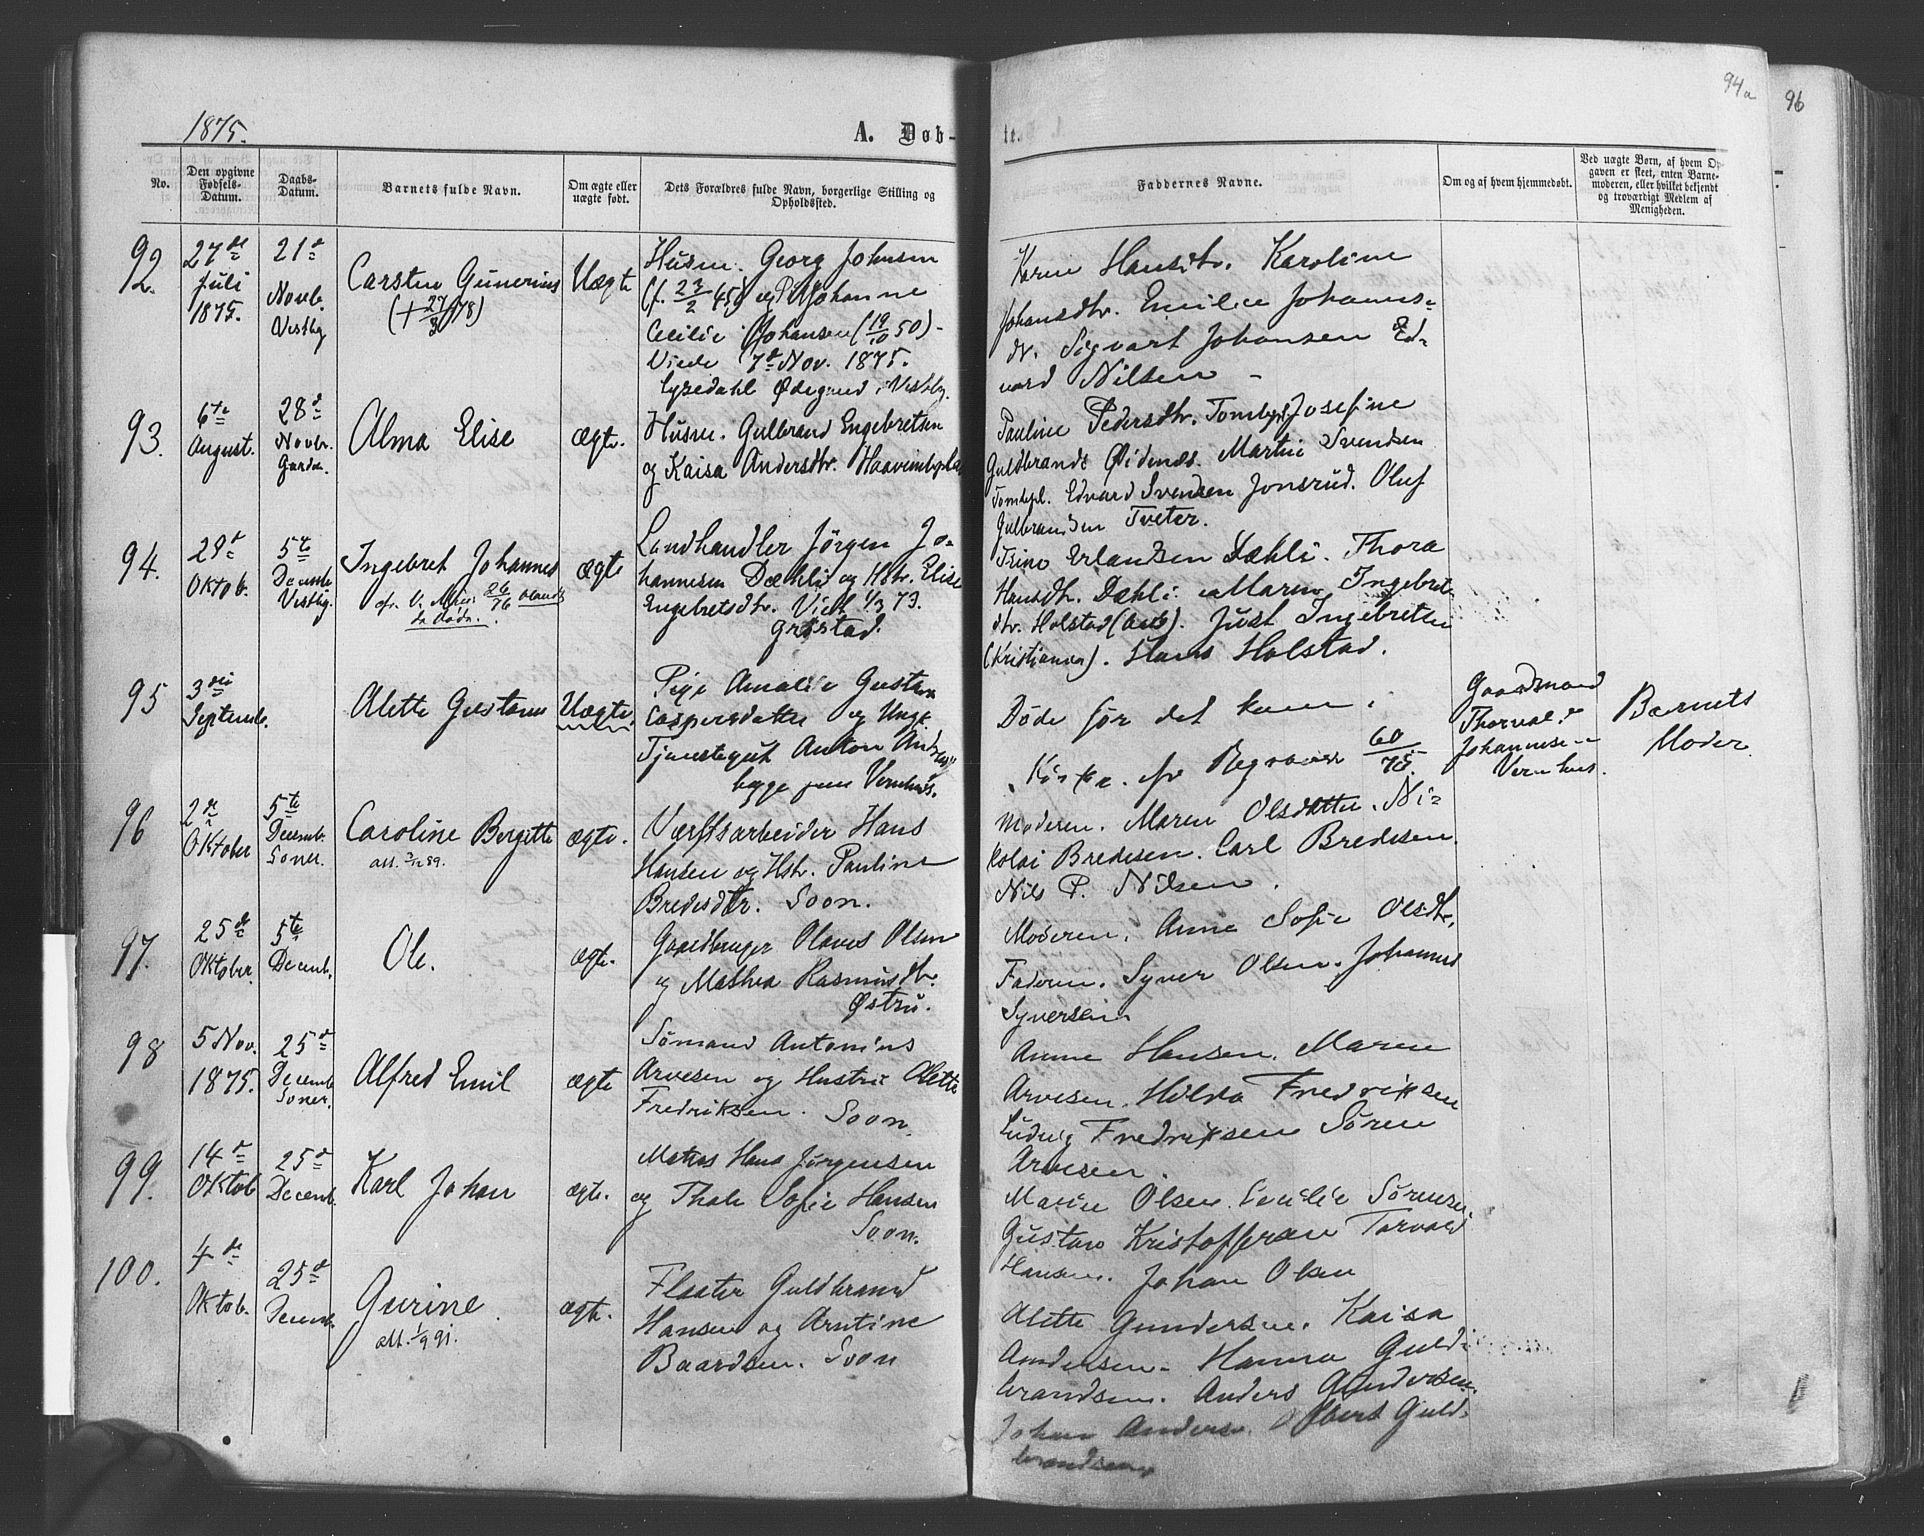 94a
96
1875.
A. Døb-
te.
No.
Den opgivne Fødsels-Datum.
Daabs-Datum.
Barnets fulde Navn.
Om ægte eller uægte født.
Dets Forældres fulde Navn, borgerlige Stilling og Opholdssted.
Faddernes Navne.
Om og af hvem hjemmedøbt.
Ved uægte Børn, af hvem Opgaven er skeet, enten Barnemoderen, eller hvilket bekjendt og troværdigt Medlem af Menigheden.
92.
27de
Juli
1875.
21de
Novb.
Vestby
Carsten Gunerius
(+ 27/3 78)
Uægte
Husm. Georg Johnsen
(f. 23/2 45) og P. Johanne
Cecilie Johansen (19/10 50) -
Viede 7de Nov. 1875.
Ødegaard i Vestby.
Karen Hansdtr. Karoline
Johansdtr. Emilie Johannes-
dtr. Sigvart Johansen Ed-
vard Nilsen -
93.
6te
August.
28de
Novbr.
Garder
Alma Elise
ægte.
Husm. Gulbrand Engebretsen
og Kaisa Andersdtr.
Pauline Pedersdtr. Josefine
Guldbrands Martin Svendsen
Edvard Svendsen Jonsrud. Oluf
Gulbrandsen Tveter.
94.
29de
Oktob.
5te
Decembr
Vestby.
Ingebret Johannes
ægte
Landhandler Jørgen Jo-
hannesen Dæhli og Hstr. Elise
Engebretsdtr. Viet 1/3 73.
Grøstad.
Trine Erlandsen Dæhli. Thora
Hansdtr. Dæhli Maren Ingebret-
dtr. Holstad (Aas). Just Ingebretsen
(Kristiania). Hans Holstad.
95
3die
Septembr.
Alette Gustava
Uægte.
Pige Amalie Gustava
Caspersdatter og Ungk.
Tjenestegut Anton Andreas
begge paa Vernhus.
Døde før det kom i
Kirke. 60/75.
Gaardmand
Thorvald
Johannesen
Vernhus.
Barnets
Moder
96
2de
Oktober
5te
Decemb.
Soner.
Caroline Bergitte
ægte.
Værftsarbeider Hans
Hansen og Hstr. Pauline
Bredesdtr. Soon.
Moderen. Maren Olsdatter. Ni-
kolai Bredesen. Carl Bredesen.
Nils P. Nilsen.
97.
25de
Oktober.
5te
Decemb.
Ole.
ægte.
Gaardbruger Olaves Olsen
og Mathea Rasmusdtr.
Østru.
Moderen. Anne Sofie Olsdtr,
Faderen. Syver Olsen. Johannes
Syversen.
98
5 Nov.
1875.
25de
Decembr
Soner.
Alfred Emil
ægte
Sømand Antonius
Arvesen og Hustru Alette
Fredriksen. Soon.
Anne Hansen. Maren
Arvesen. Hilda Fredriksen
Ludvig Fredriksen Søren
Arvesen.
99.
14de
Oktob
25de
Decemb.
Karl Johan
ægte.
Matros Hans Jørgensen
og Thale Sofie Hansen
Soon.
Maren Olsen. Emilie Sørensen.
Gustav Kristoffersen Torvald
Hansen. Johan Olsen
100.
4de
Oktob.
25de
Decemb.
Gurine.
att. 1/9 91.
ægte.
Fløter Guldbrand
Hansen og Arntine
Baardsen. Soon
Alette Gundersen. Kaisa
Andersen. Hanna Guld-
brandsen. Anders Gundersen.
Johan Andersen. Albert Guld-
brandsen